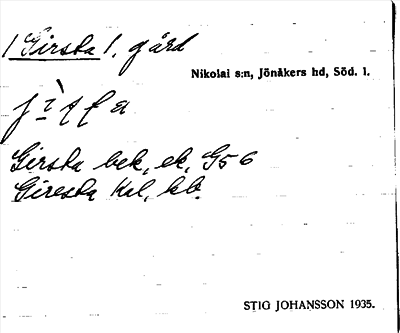 1 Girsta 1. gård
Nikolai s:n, Jönåkers hd, Söd. l.
Girsta bek, ek, G5 6
Giresta Kal, kb.
STIG JOHANSSON 1935.